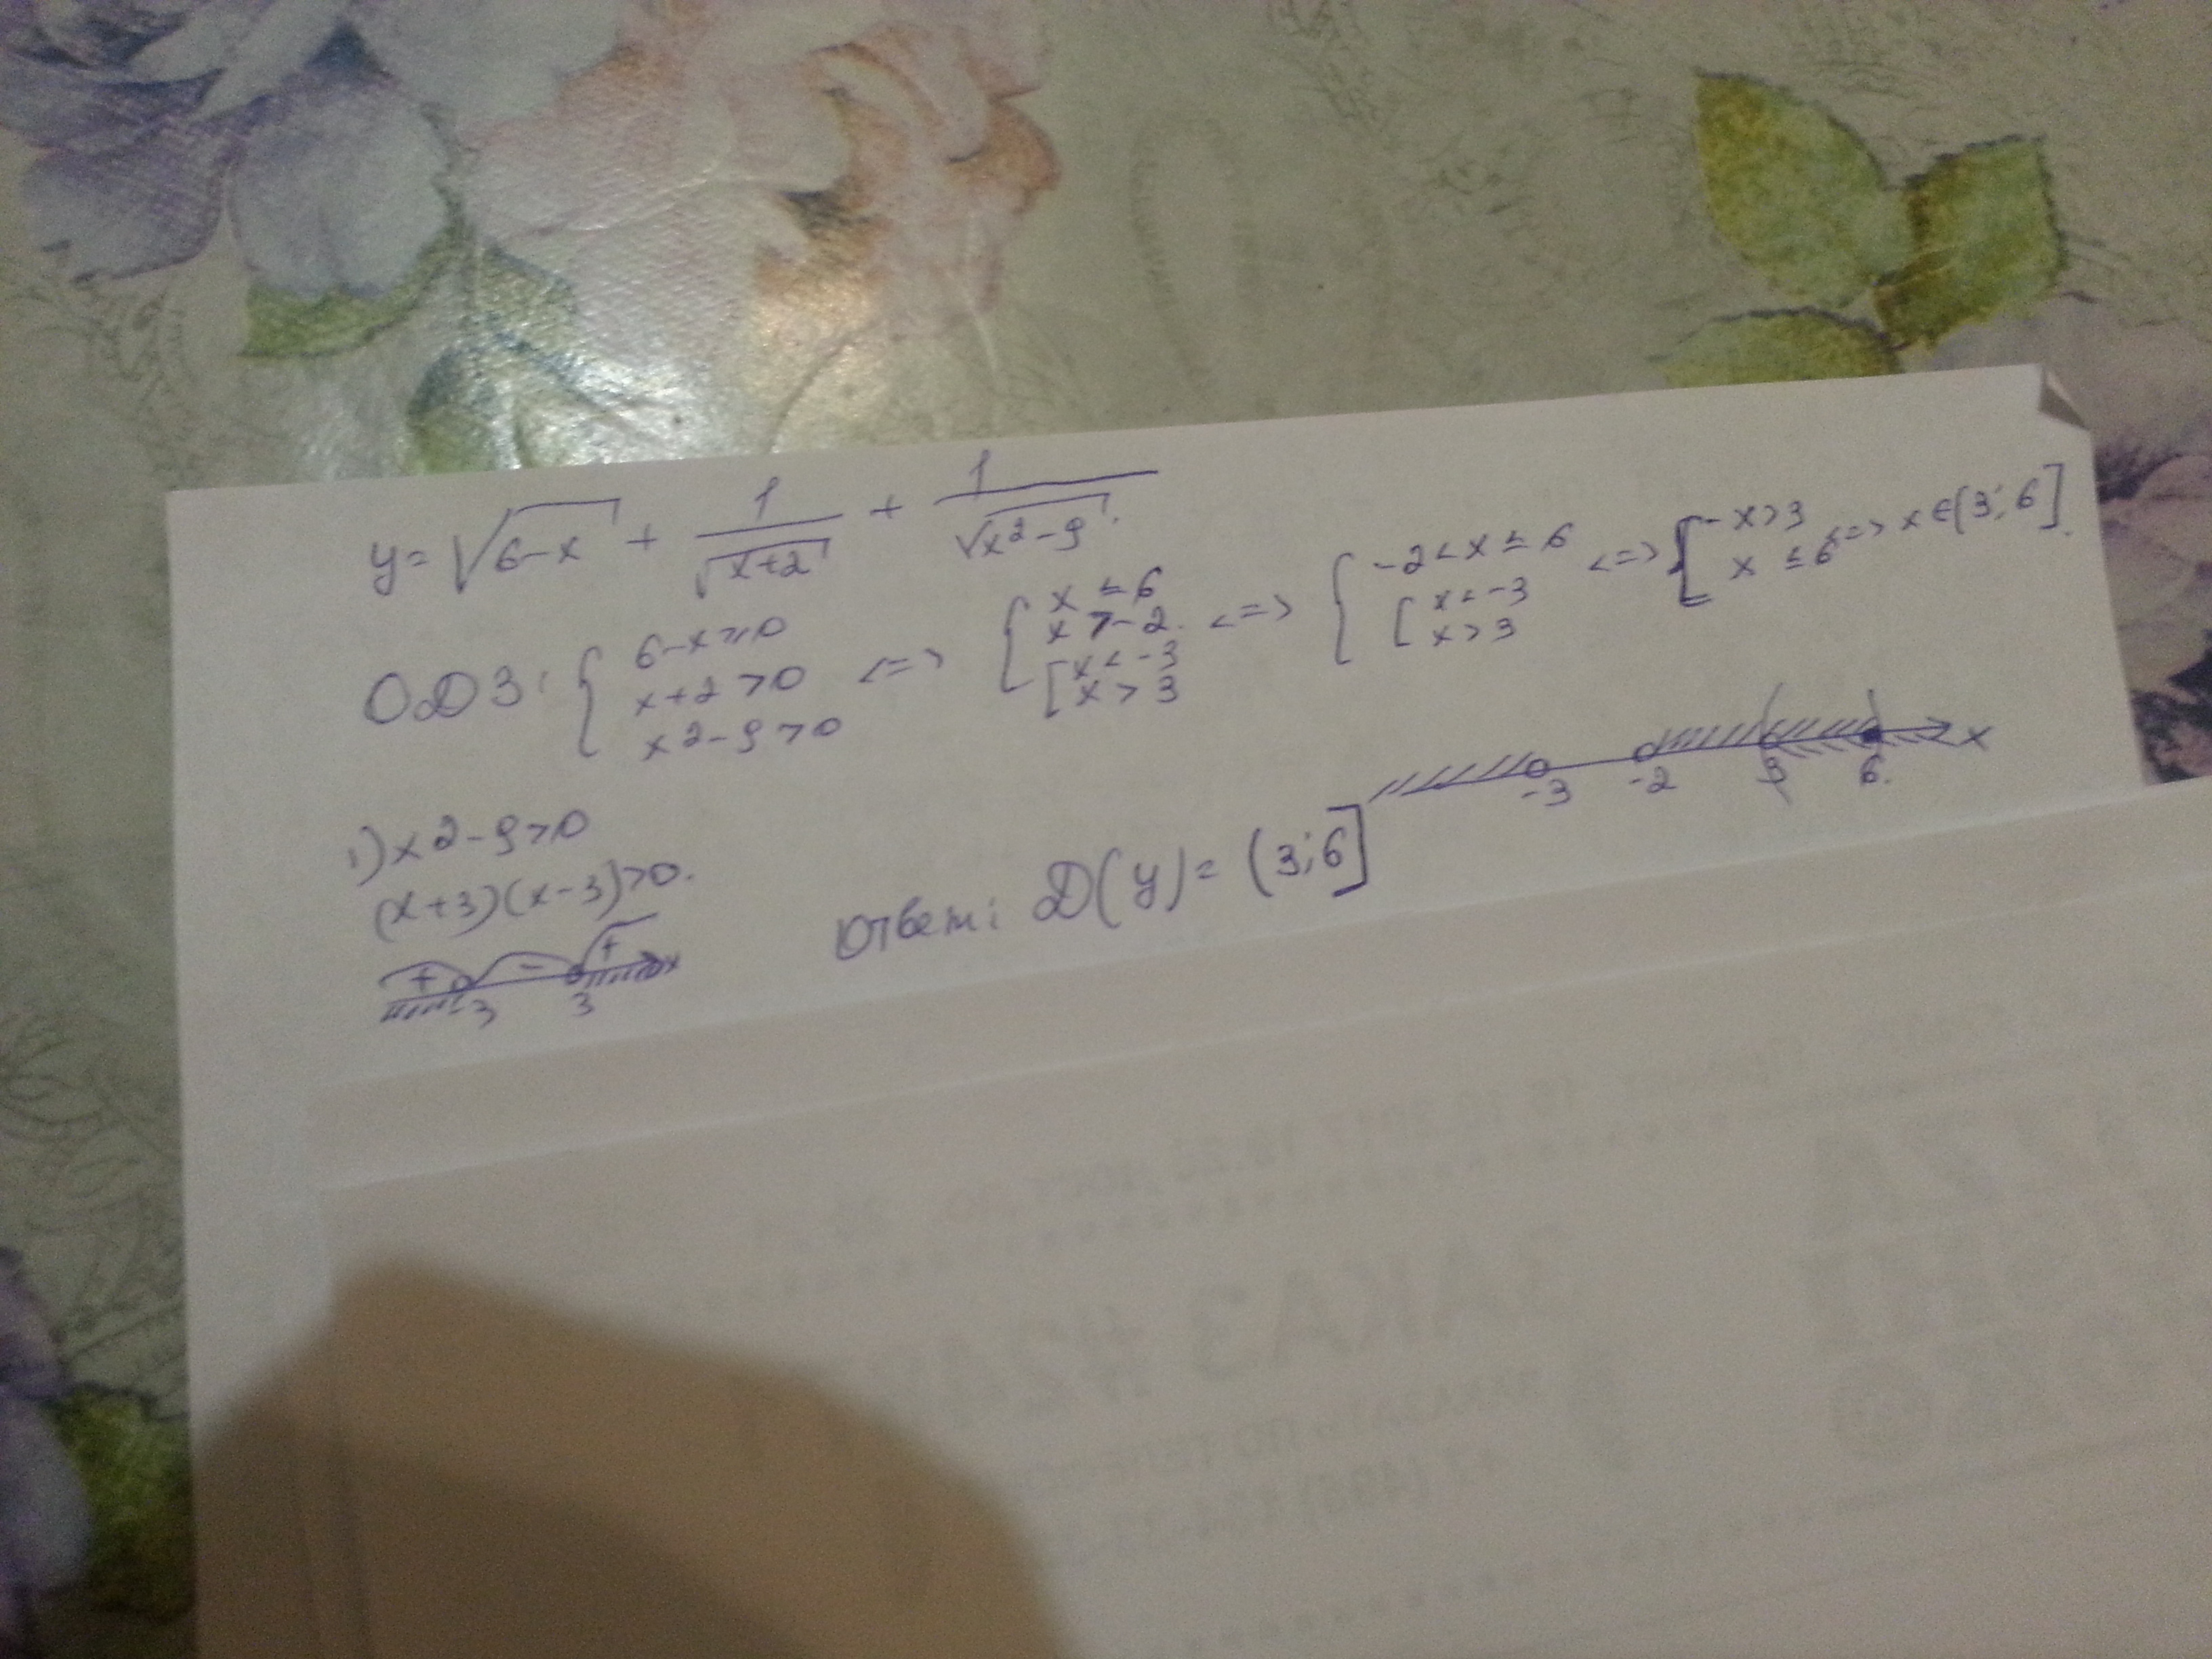 y = √(6-x) + 1/√(x+2) + 1/√(x²-9).
ОДЗ: { 6-x≥0 x+2>0 x²-9>0 <=> { x≤6 x>-2. [x<-3 x>3 <=> { -2<x≤6 [x<-3 x>3 <=> [ -x>3 x≤6 <=> x∈(3;6].
-3 -2 3 6. x
1) x²-9>0
(x+3)(x-3)>0.
+ - + x
-3 3
Ответ: D(y) = (3;6]
ЗАКАЗ #2